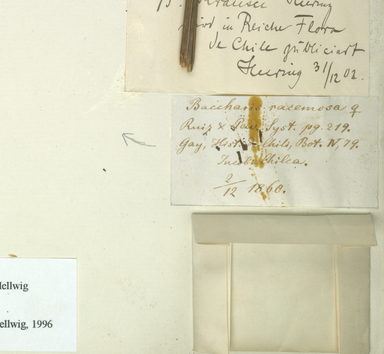 B. Heering
wird in Reiche Flora
de Chile publiciert
Heering 31/12 02.
Baccharis racemosa
Ruiz & Pav. Syst. pg. 219.
Gay, Hist. Chile, Bot. IV, 79.
2/12 1860.
Hellwig
Hellwig, 1996